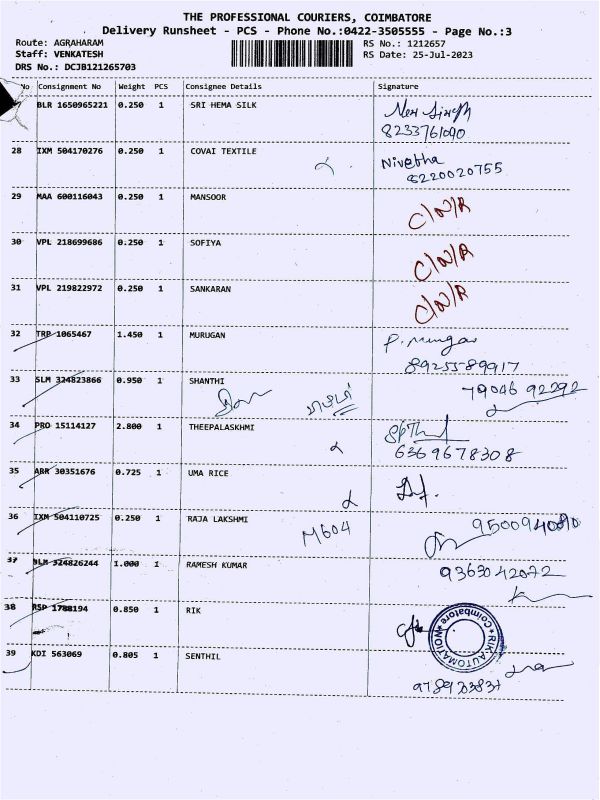 THE PROFESSIONAL COURIERS, COIMBATORE
Delivery Runsheet - PCS - Phone No.:0422-3505555 - Page No.:3
Route: AGRAHARAM RS No.: 1212657
Staff: VENKATESH RS Date: 25-Jul-2023
DRS No.: DCJB121265703
No Consignment No Weight PCS Consignee Details Signature
BLR 1650965221 0.250 1 SRI HEMA SILK
8233761090
28 IXM 504170276 0.250 1 COVAI TEXTILE Nivetha
8220020755
29 MAA 600116043 0.250 1 MANSOOR C/N/R
30 VPL 218699686 0.250 1 SOFIYA C/N/R
31 VPL 219822972 0.250 1 SANKARAN C/N/R
32 TRP 1065467 1.450 1 MURUGAN
8925589917
33 SLM 324823866 0.950 1 SHANTHI 79046 92292
34 PRO 15114127 2.800 1 THEEPALASKHMI
6369678308
35 ARR 30351676 0.725 1 UMA RICE
36 IXM 504110725 0.250 1 RAJA LAKSHMI M604
37 SLM 324826244 1.000 1 RAMESH KUMAR 9363042072
38 RSP 1788194 0.850 1 RIK
RIK AUTOMATION
Coimbatore
39 KDI 563069 0.805 1 SENTHIL